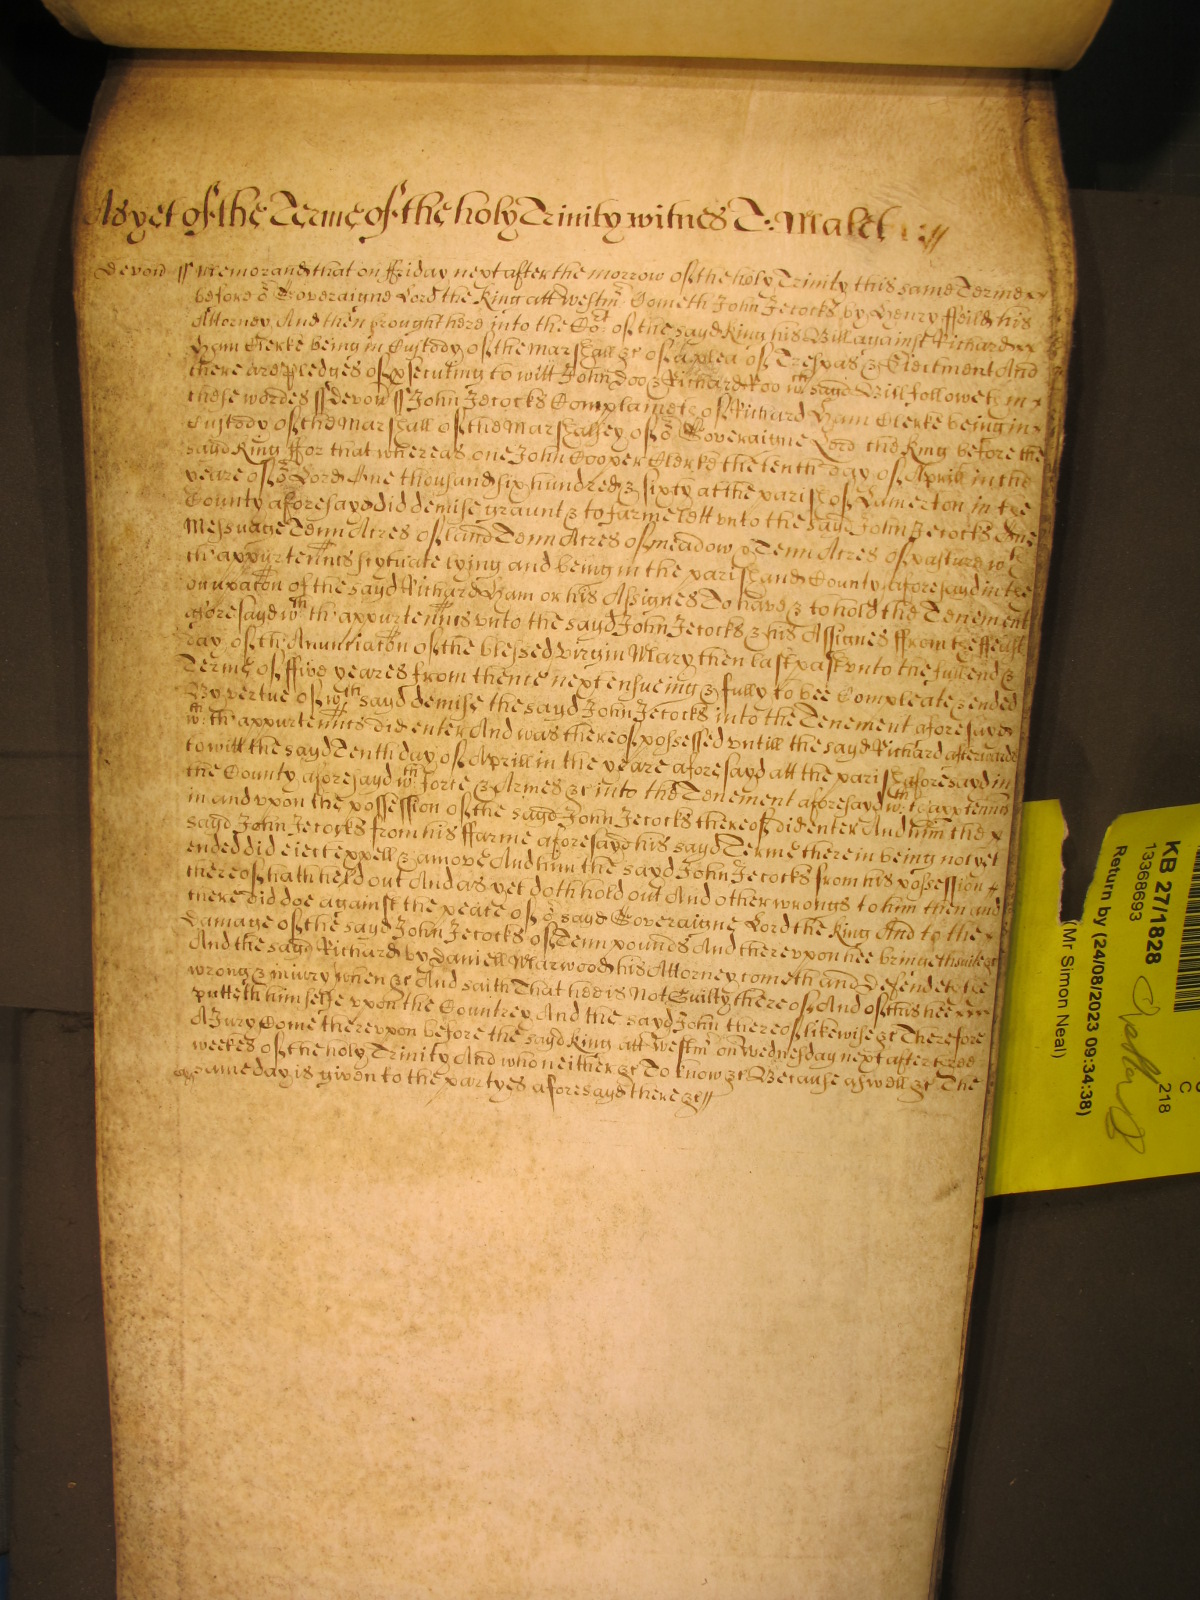 As yet of the Terme of the holy Trinity witnes T: Malet
Devon ss Memorand that on ffriday next after the morrow of the holy Trinity this same Terme
before or Soveraigne Lord the King att Westmr Cometh John Jecocks by Henry ffeild his
Attorney And then brought here into the Cort of the sayd King his Bill against Richard
Ham Clerke being in Custody of the Marshall &c of a plea of Trespas & Eiectment And
there are pledges of p'secuting to witt John Doo & Richard Roo wch sayd Bill followeth in
these wordes ss Devon ss John Jecocks Complaineth of Richard Ham Clerke being in
Custody of the Marshall of the Marshalsey of or Soveraigne Lord the King before the
sayd King ffor that whereas one John Cooper Clerke the tenth day of Aprill in the
yeare of or Lord One thousand six hundred & sixty at the parish of Lamerton in the
County aforesayd did demise graunt & to farme lett vnto the sayd John Jecocks One
Messuage Tenn Acres of land Tenn Acres of meadow & Tenn Acres of pasture wth
th'appurtennts scytuate lying and being in the parish and County aforesayd in the
occupacon of the sayd Richard Ham or his Assignes To have & to hold the Tenement
aforesayd wth th'appurtennts vnto the sayd John Jecocks & his Assignes ffrom the ffeast
day of th'Anunciacon of the blessed virgin Mary then last past vnto the full end &
Terme of ffive yeares from thence next ensueing & fully to bee Compleate & ended
By vertue of wch sayd demise the sayd John Jecocks into the Tenement aforesayd
wth th'appurtennts did enter And was thereof possessed vntill the sayd Richard afterwards
to witt the sayd Tenth day of Aprill in the yeare aforesayd att the parish aforesayd in
the County aforesayd wth force & Armes &c into the Tenement aforesayd wth th'apptennts
in and vpon the possession of the sayd John Jecocks thereof did enter And him the
sayd John Jecocks from his ffarme aforesayd his sayd Terme therein being not yet
ended did eiect expell & amove And him the sayd John Jecocks from his possession
thereof hath held out And as yet doth hold out And other wrongs to him then and
there did doe against the peace of or sayd Soveraigne Lord the King And to the
Damage of the sayd John Jecocks of Tenn pounds And therevpon hee bringeth suite &c
And the sayd Richard by Daniell Marwood his Attorney cometh and defendeth the
wrong & iniury when &c And saith That hee is Not Guilty thereof And of this hee
putteth himselfe vpon the Countrey And the sayd John thereof likewise &c Therefore
A Jury Come therevpon before the sayd King att Westmr on Wednesday next after three
weekes of the holy Trinity And who neither &c To know &c Because aswell &c The
same day is given to the partyes aforesayd there &c
KB 27/1828
13368693
218
C
Return by (24/08/2023 09:34:38)
(Mr Simon Neal)